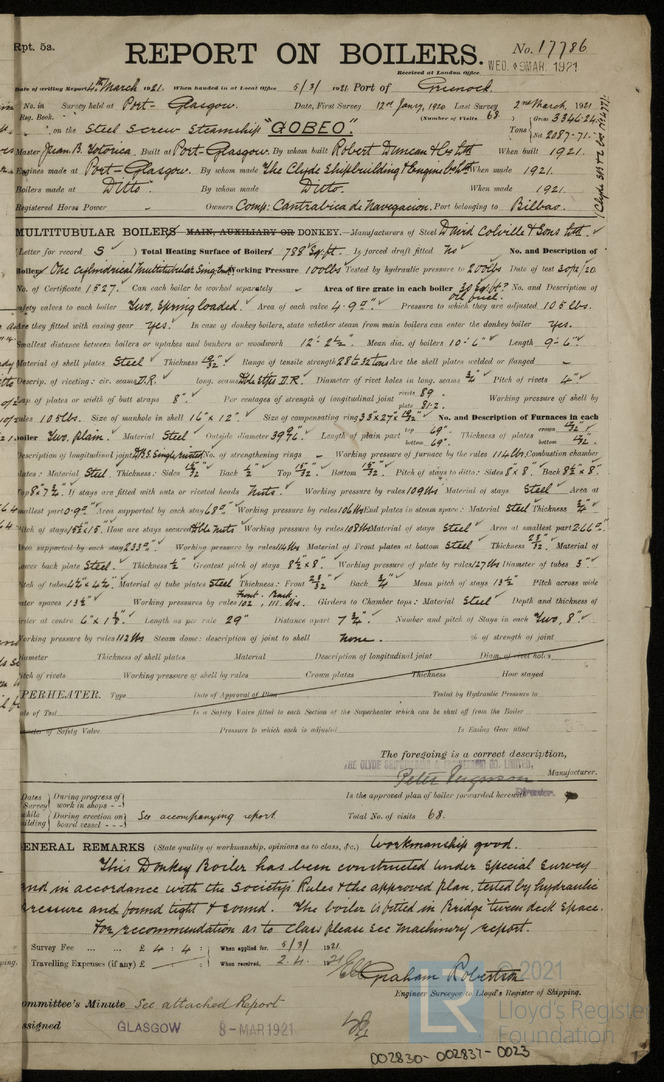 Rpt. 5a.
REPORT ON BOILERS.
No. 17786
Received at London Office WED. 9 MAR. 1921
Date of writing Report 4th March 1921. When handed in at Local Office 5/3/1921 Port of Greenock
No. in Survey held at Port-Glasgow. Date, First Survey 12th Jany, 1920 Last Survey 2nd March, 1921
Reg. Book. (Number of Visits 68.)
on the Steel Screw Steamship "GOBEO." Tons Gross 3346.24 Net 2087.71.
Master Built at Port-Glasgow. By whom built Robert Duncan & Co Ltd When built 1921.
Engines made at Port-Glasgow. By whom made The Clyde Shipbuilding & Engine Co Ltd When made 1921.
Boilers made at Ditto. By whom made Ditto. When made 1921.
Registered Horse Power Owners Comp: Cantrabica de Navegacion. Port belonging to Bilbao.
MULTITUBULAR BOILERS MAIN, AUXILIARY OR DONKEY.—Manufacturers of Steel David Colville & Sons Ltd.
(Letter for record S) Total Heating Surface of Boilers 788 sq.ft. Is forced draft fitted No No. and Description of
Boilers One cylindrical Multitubular Single Working Pressure 100 lbs Tested by hydraulic pressure to 200 lbs Date of test
No. of Certificate 1527. Can each boiler be worked separately - Area of fire grate in each boiler oil fuel. No. and Description of
safety valves to each boiler Two, Spring loaded. Area of each valve 4.9 □". Pressure to which they are adjusted 105 lbs.
Are they fitted with easing gear yes. In case of donkey boilers, state whether steam from main boilers can enter the donkey boiler yes.
Smallest distance between boilers or uptakes and bunkers or woodwork Mean dia. of boilers 10'-6" Length 9'-6"
Material of shell plates Steel Thickness Range of tensile strength 28 to 32 tons Are the shell plates welded or flanged -
Descrip. of riveting: cir. seams D.R. long. seams D.R. Diameter of rivet holes in long. seams 3/4" Pitch of rivets 4"
Lap of plates or width of butt straps 8" Per centages of strength of longitudinal joint rivets 89. plate 81.2 Working pressure of shell by
rules 105 lbs. Size of manhole in shell 16" x 12". Size of compensating ring No. and Description of Furnaces in each
boiler Two, Plain. Material Steel Outside diameter Length of plain part top 69" bottom 69" Thickness of plates crown bottom
Description of longitudinal joint No. of strengthening rings - Working pressure of furnace by the rules 114 lbs. Combustion chamber
plates: Material Steel. Thickness: Sides Back Top Bottom Pitch of stays to ditto: Sides 8" x 8" Back 8½ x 8"
Top If stays are fitted with nuts or riveted heads Nuts. Working pressure by rules 109 lbs Material of stays Steel Area at
smallest part Area supported by each stay 68 □" Working pressure by rules 106 lbs End plates in steam space: Material Steel Thickness 3/4"
Pitch of stays How are stays secured Dble Nuts Working pressure by rules 108 lbs Material of stays Steel Area at smallest part
Area supported by each stay 233 □" Working pressure by rules 114 lbs Material of Front plates at bottom Steel Thickness 23/32" Material of
Lower back plate Steel. Thickness Greatest pitch of stays 8½ x 8" Working pressure of plate by rules 127 lbs Diameter of tubes 3"
Pitch of tubes 4¼ x 4¼" Material of tube plates Steel Thickness: Front 23/32" Back 3/4" Mean pitch of stays 13½" Pitch across wide
water spaces 13½" Working pressures by rules Front 102, Back 111 lbs. Girders to Chamber tops: Material Steel Depth and thickness of
girder at centre Length as per rule 29" Distance apart 7¾" Number and pitch of Stays in each Two, 8"
Working pressure by rules 112 lbs Steam dome: description of joint to shell None. % of strength of joint
Diameter Thickness of shell plates Material Description of longitudinal joint Diam. of rivet holes
Pitch of rivets Working pressure of shell by rules Crown plates Thickness How stayed
SUPERHEATER. Type Date of Approval of Plan Tested by Hydraulic Pressure to
Date of Test Is a Safety Valve fitted to each Section of the Superheater which can be shut off from the Boiler
Diameter of Safety Valve Pressure to which each is adjusted Is Easing Gear fitted
The foregoing is a correct description,
THE CLYDE SHIPBUILDING & ENGINEERING CO. LIMITED,
Peter Ferguson Manufacturer.
Director.
Dates of Survey while building During progress of work in shops - - During erection on board vessel - - - See accompanying report
Is the approved plan of boiler forwarded herewith
Total No. of visits 68.
GENERAL REMARKS (State quality of workmanship, opinions as to class, &c.) Workmanship good.
This Donkey Boiler has been constructed under Special Survey
and in accordance with the Society's Rules & the approved plan, tested by hydraulic
pressure and found tight & sound. The boiler is fitted in Bridge 'tween deck space.
For recommendation as to Class please see Machinery report.
Survey Fee ... ... £ 4 : 4 : When applied for, 5/3/1921.
Travelling Expenses (if any) £ When received, 2.4.1921
Graham Robertson
Engineer Surveyor to Lloyd's Register of Shipping.
Committee's Minute See attached Report
Assigned GLASGOW 8-MAR 1921
© 2021
Lloyd's Register
Foundation
002830-002837-0023